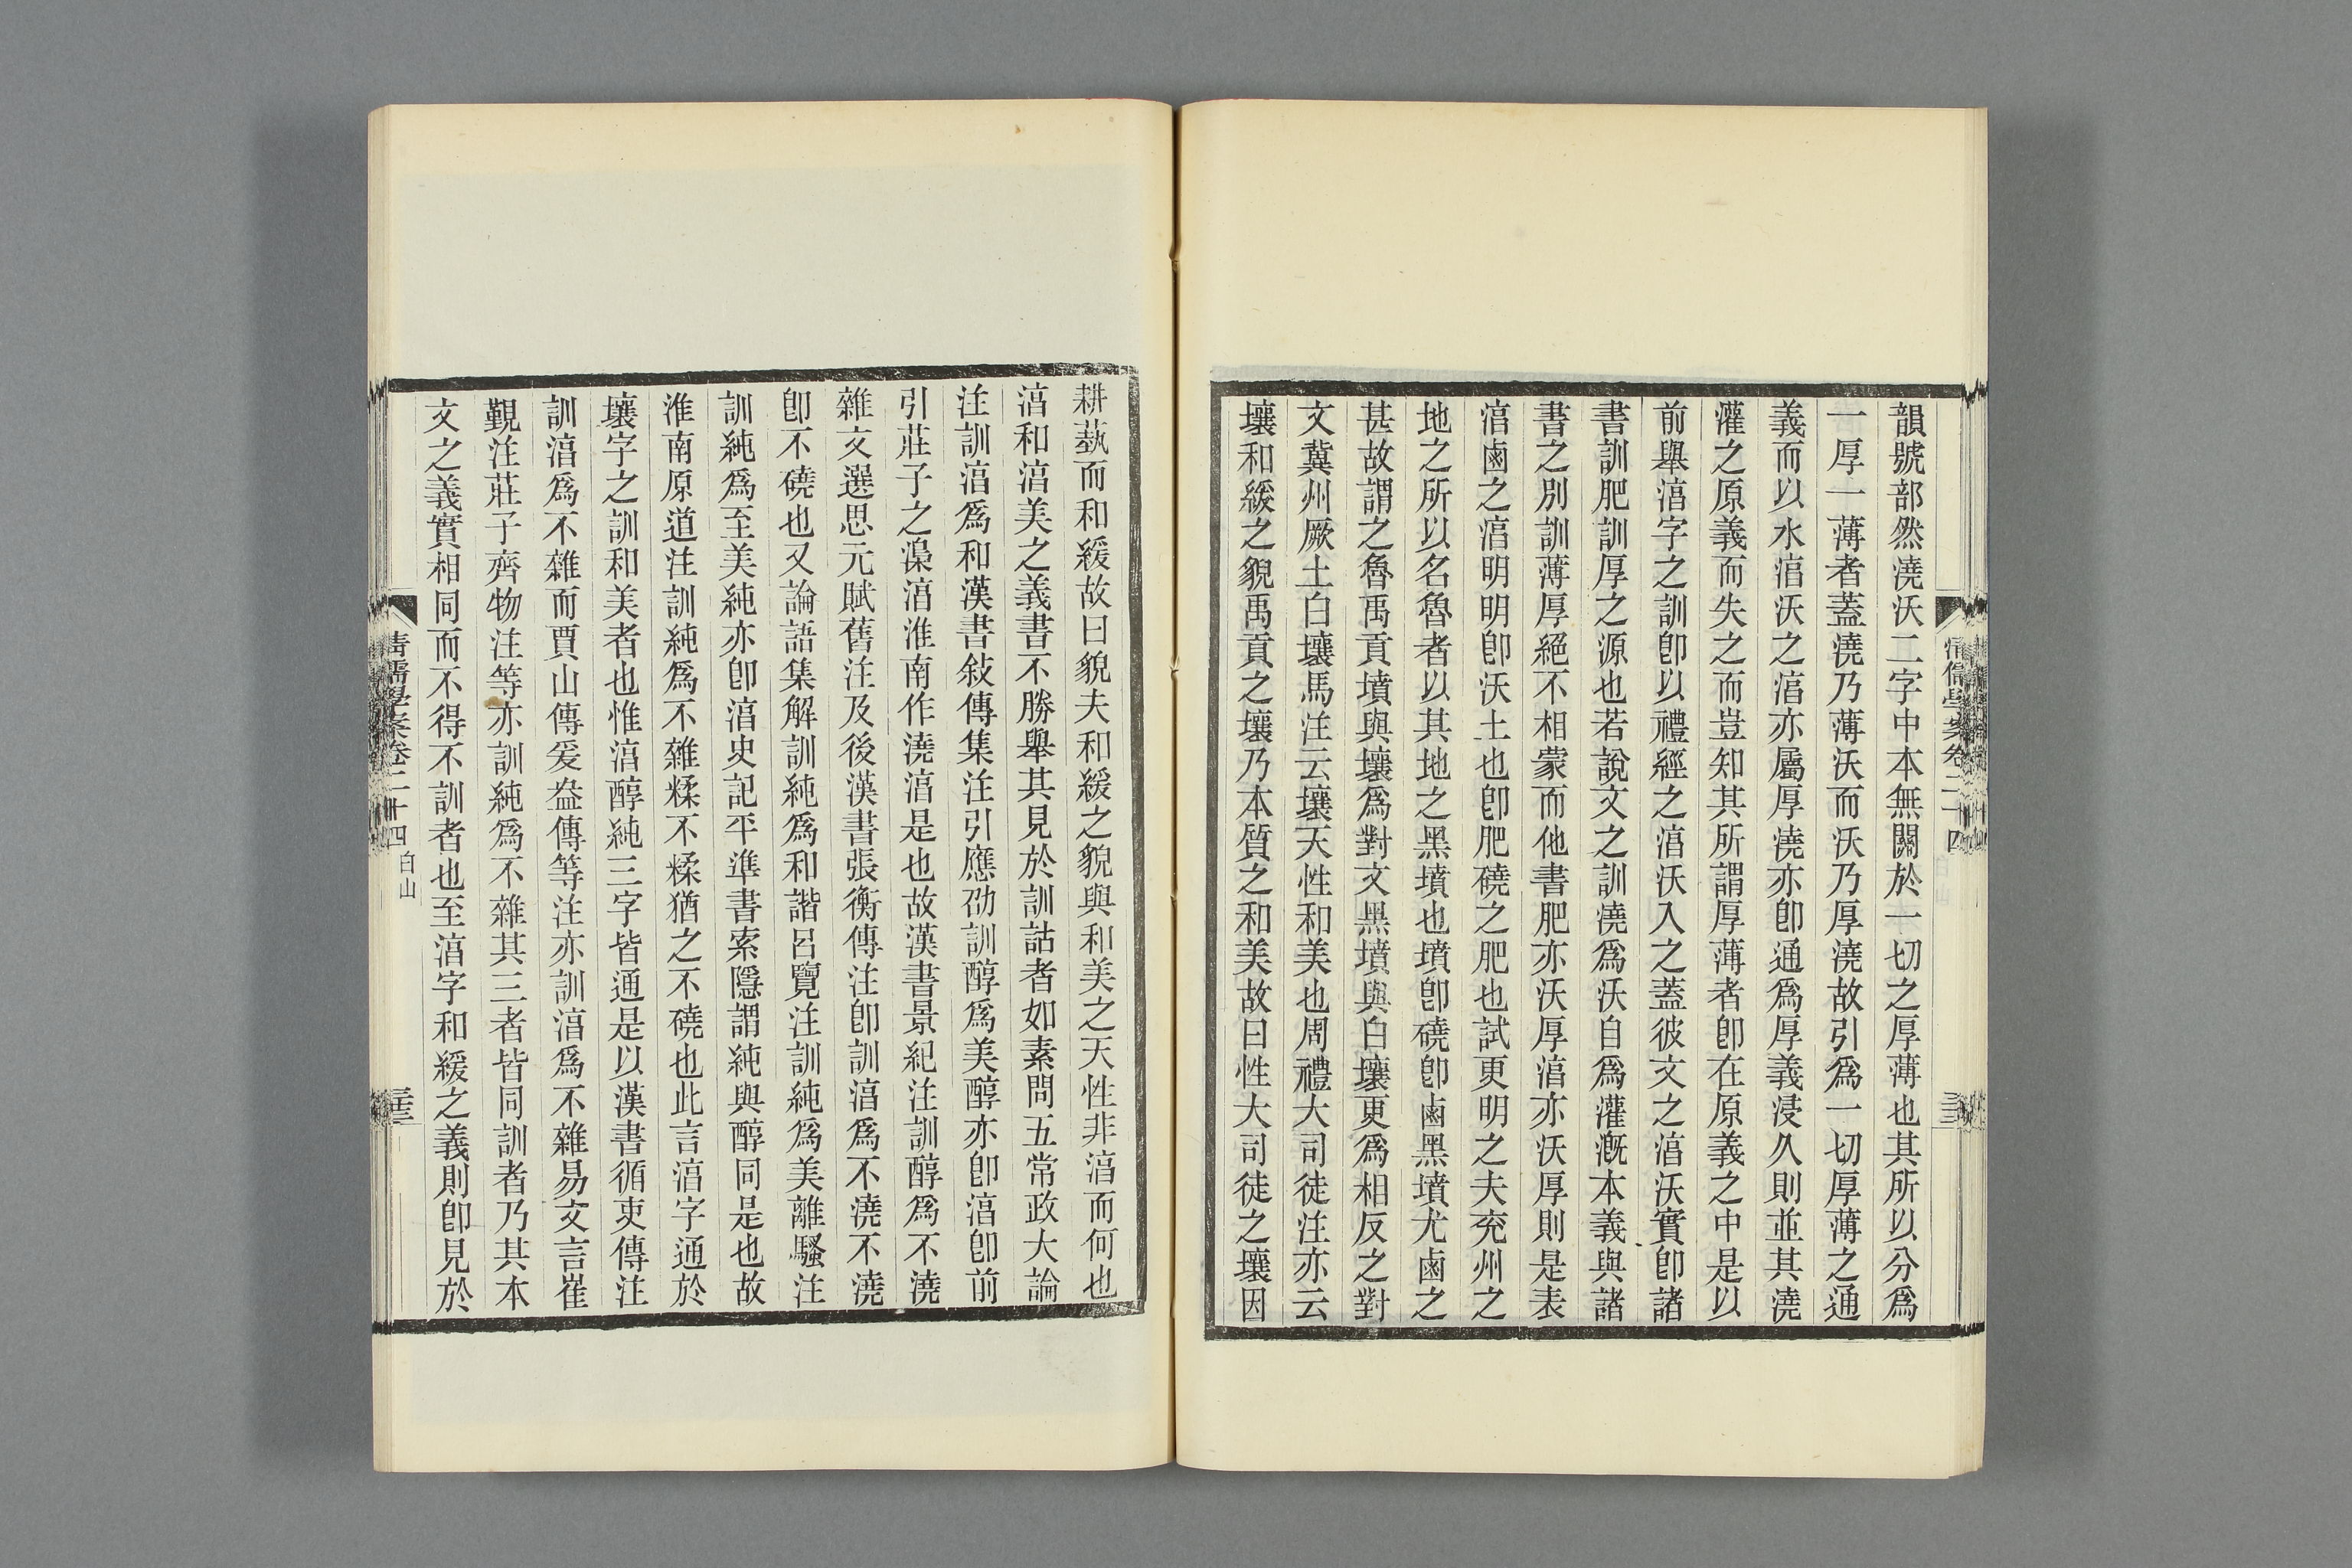 韻號部然澆沃二字中本無關於一切之厚薄也其所以分爲
一厚一薄者蓋澆乃薄沃而沃乃厚澆故引爲一切厚薄之通
義而以水湻沃之湻亦屬厚澆亦卽通爲厚義浸久則並其澆
灌之原義而失之而豈知其所謂厚薄者卽在原義之中是以
前舉湻字之訓卽以禮經之湻沃入之蓋彼文之湻沃實卽諸
書訓肥訓厚之源也若說文之訓澆爲沃自爲灌漑本義與諸
書之別訓薄厚絕不相蒙而他書肥亦沃厚湻亦沃厚則是表
湻鹵之湻明明卽沃土也卽肥磽之肥也試更明之夫兖州之
地之所以名魯者以其地之黑墳也墳卽磽卽鹵黑墳尤鹵之
甚故謂之魯禹貢墳與壤爲對文黑墳與白壤更爲相反之對
文冀州厥土白壤馬注云壤天性和美也周禮大司徒注亦云
壤和緩之貌禹貢之壤乃本質之和美故曰性大司徒之壤因
耕蓺而和緩故曰貌夫和緩之貌與和美之天性非湻而何也
湻和湻美之義書不勝舉其見於訓詁者如素問五常政大論
注訓湻爲和漢書敍傳集注引應劭訓醇爲美醇亦卽湻卽前
引莊子之澆湻淮南作澆湻是也故漢書景紀注訓醇爲不澆
雜文選思元賦舊注及後漢書張衡傳注卽訓湻爲不澆不澆
卽不磽也又論語集解訓純爲和諧呂覽注訓純爲美離騷注
訓純爲至美純亦卽湻史記平準書索隱謂純與醇同是也故
淮南原道注訓純爲不雜糅不糅猶之不磽也此言湻字通於
壤字之訓和美者也惟湻醇純三字皆通是以漢書循吏傳注
訓湻爲不雜而賈山傳爰盎傳等注亦訓湻爲不雜易文言崔
覲注莊子齊物注等亦訓純爲不雜其三者皆同訓者乃其本
文之義實相同而不得不訓者也至湻字和緩之義則卽見於
清儒學案卷二十四
白山
三
清儒學案卷二十四